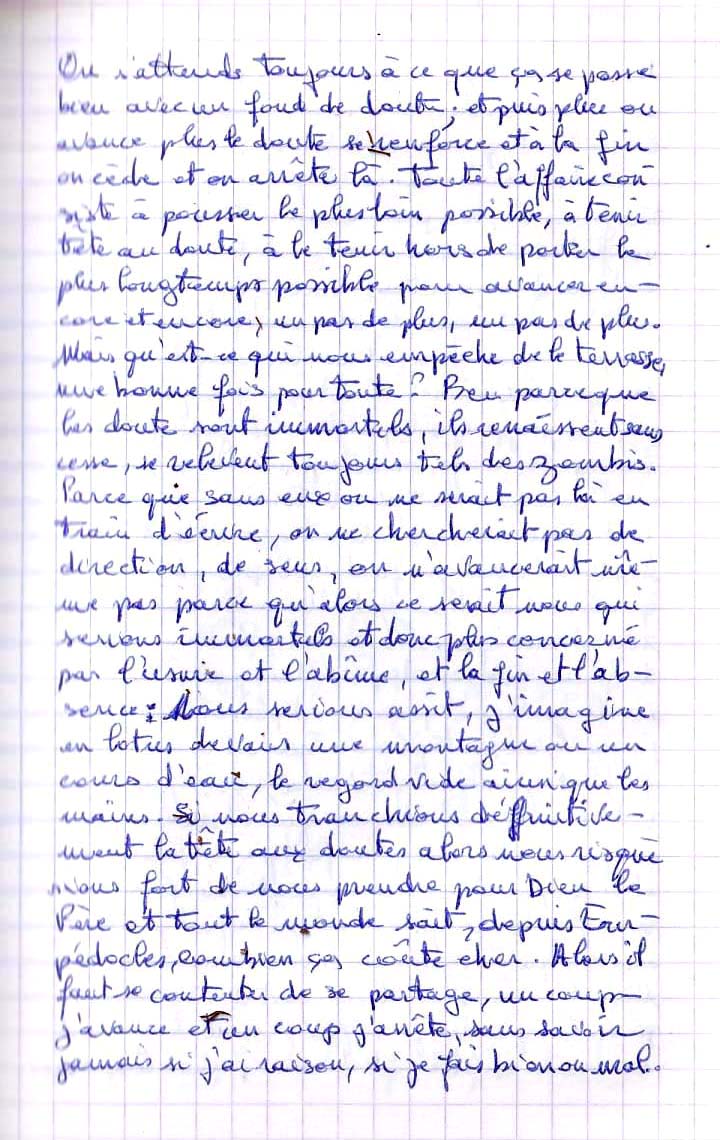 On s'attends toujours à ce que ça se passe
bien avec un fond de doute ; et puis plus on
avance plus le doute se renforce et à la fin
on cède et on arrête là. Toute l'affaire con
siste à pousser le plus loin possible, à tenir
tête au doute, à le tenir hors de portée le
plus longtemps possible pour avancer en-
core et encore, un pas de plus, un pas de plus.
Mais qu'est-ce qui nous empêche de le terrasser,
une bonne fois pour toute ? Ben parce que
les doute sont immortels, ils renaissent sans
cesse, se relèvent toujours tels des zombis.
Parce que sans eux on ne serait pas là en
train d'écrire, on ne chercherait pas de
direction, de sens, on n'avancerait mê-
me pas parce qu'alors ce serait nous qui
serions immortels et donc plus concerné
par l'usure et l'abîme, et la fin et l'ab-
sence : Nous serions assit, j'imagine
en lotus devais une montagne ou un
cours d'eau, le regard vide ainsi que les
mains. Si nous tranchions déffinitive-
ment la tête aux doutes alors nous risque
rions fort de nous prendre pour Dieu le
Père et tout le monde sait, depuis Em-
pédocles, combien ça coûte cher. Alors il
faut se contenter de se partage, un coup
j'avance et un coup j'arrête, sans savoir
jamais si j'ai raison, si je fais bien ou mal.